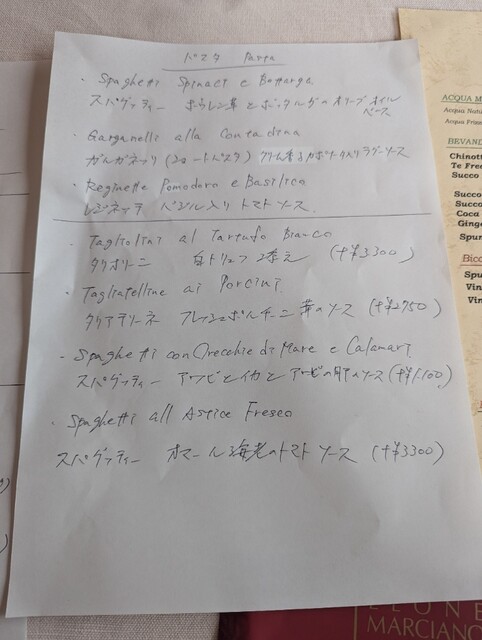 パスタ Pasta
・Spaghetti Spinaci e Bottarga
スパゲッティー ホウレン草とボッタルガのオリーブオイル
ベース
・Garganelli alla Contadina
ガルガネッリ (ショートパスタ) ラグーソース
・Reginette Pomodoro e Basilico
レジネッテ バジル入りトマトソース
・Tagliolini al Tartufo Bianco
タリオリーニ 白トリュフ添え (+¥3300)
・Tagliatelline ai Porcini
タリアテリーネ フレッシュポルチーニ茸のソース (+¥2750)
・Spaghetti con Orecchie di Mare e Calamari
スパゲッティー アワビとイカとアワビの肝のソース (+¥1,100)
・Spaghetti all Astice Fresco
スパゲッティー オマール海老のトマトソース (+¥3300)
ACQUA M
Acqua Natu
Acqua Frizz
BEVAND
Chinott
Te Fred
Succo
Succo
Succo
Coca
Ginge
Spur
Bicc
Spu
Vin
Vin
LEONE
MARCIANO